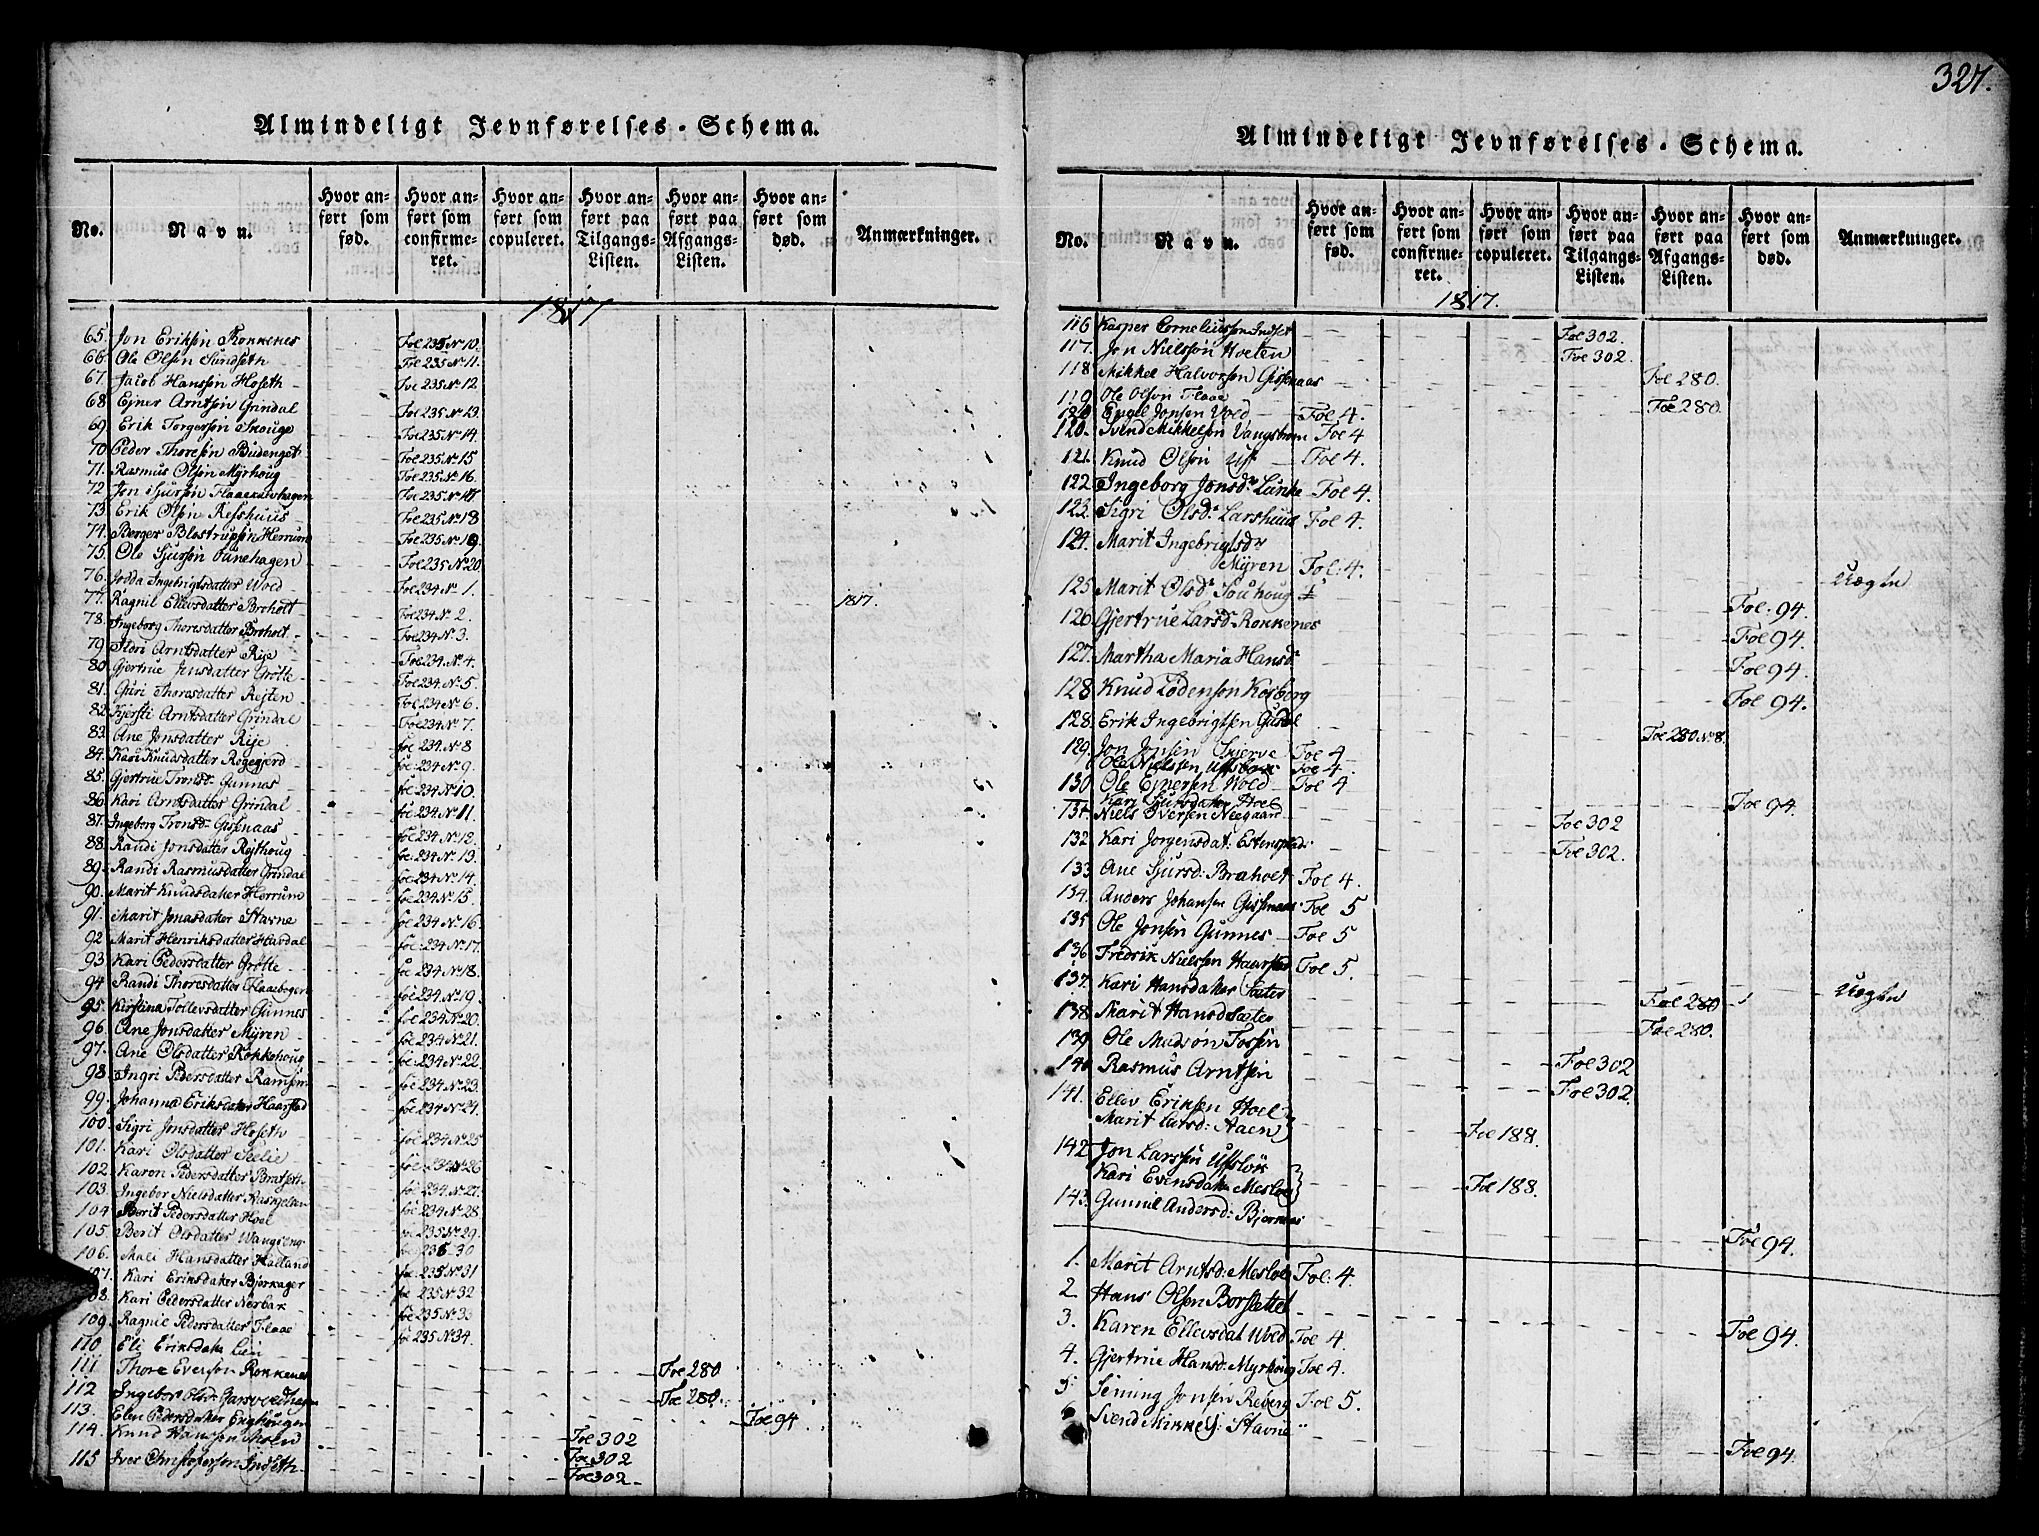 327.
Almindeligt Jevnførelses-Schema.
No. Navn. Hvor anført som fød. Hvor anført som confirmeret. Hvor anført som copuleret. Hvor anført paa Tilgangs-Listen. Hvor anført paa Afgangs-Listen. Hvor anført som død. Anmærkninger.
1817
65. Jon Eriksøn Rokkenes Foe 235 No 10.
66. Ole Olsen Sundseth Foe 235 No 11.
67. Jacob Hanssøn Hoseth Foe 235 No 12
68 Ejner Arntsøn Grindal Foe 235 No 13.
69 Erik Torgersøn Skouge Foe 235 No 14.
70 Peder Thoresøn Budenget Foe 235 No 15
71. Rasmus Olsøn Myrhoug Foe 235 No 16.
72 Jon Sjursøn Foe 235 No 17
73 Erik Olsøn Resshuus Foe 235 No 18
74. Berger Blostrupsøn Herrum Foe 235 No 19
75. Ole Sjursøn Tunehagen Foe 235 No 20
76. Jodda Ingebrigtsdatter Wold Foe 234 No 1.
77. Ragnil Ellevsdatter Broholt Foe 234 No 2. 1817.
78. Ingeborg Thoresdatter Broholt Foe 234 No 3.
79. Arntsdatter Rije Foe 234 No 4.
80. Gjertrue Jensdatter Grøtte Foe 234 No 5.
81. Guri Thoresdatter Rejten Foe 234 No 6.
82. Kjersti Arntsdatter Grindal Foe 234 No 7.
83. Ane Jonsdatter Rije foe 234 No 8
84. Kari Knudsdatter Rogegjerd foe 234 No 9.
85. Gjertrue Tronsd. Gunnes foe 234 No 10.
86. Kari Arntsdatter Grindal foe 234 No 11.
87. Ingeborg Tronsd. Gissenaas foe 234 No 12.
88. Randi Jonsdatter Rejthoug foe 234 No 13.
89. Randi Rasmusdatter Grindal foe 234 No 14.
90. Marit Knudsdatter Herrum foe 234 No 15.
91. Marit Jonasdatter Stavne foe 234 No 16.
92 Marit Henriksdatter Havdal foe 234 No 17.
93 Kari Pedersdatter Grøtte foe 234 No 18.
94 Randi Thoresdatter Flaaehagen foe 234 No 19.
95. Kirstina Tollevsdatter Gunnes foe 234 No 20.
96 Ane Jonsdatter Myren foe 234 No 21.
97. Ane Olsdatter Rokkehoug foe 234 No 22
98 Ingri Pedersdatter Ramsem foe 234 No 23.
99. Johanna Eriksdatter Haarstad foe 234 No 24.
100. Sigri Jonsdatter Hoseth foe 234 No 25
101. Kari Olsdatter Seelie foe 234 No 26
102. Karen Pedersdatter Bratseth foe 234 No 27.
103. Ingebor Nielsdatter foe 234 No 28
104 Berit Pedersdatter Hoel foe 235 No 29.
105. Berit Olsdatter Wangseng foe 235 30
106. Mali Hansdatter Halland foe 235 No 31
107. Kari Eriksdatter Bjerkager foe 235 No 32
108. Kari Pedersdatter Nerbak foe 235 No 33
109. Ragnil Pedersdatter Flaae foe 235 No 34.
110. Eli Eriksdatter Lien
111 Thore Everson Rokkenes Foe 280
112 Ingebor Olsdr Foe 280
113. Elen Pedersdatter Enghougen Foe 94
114. Knud Hanssen Moen Foe 302
115 Iver Christophersen Indseth Foe 302
Foe 302
Almindeligt Jevnførelses-Schema.
No. Navn. Hvor anført som fød. Hvor anført som confirmeret. Hvor anført som copuleret. Hvor anført paa Tilgangs-Listen. Hvor anført paa Afgangs-Listen. Hvor anført som død. Anmærkninger.
1817.
116 Kasper Corneliussøn Indset Foe 302.
117. Jon Nielssøn Hoeten Foe 302
118 Mikkel Halvorsøn Gissenaas Foe 280.
119 Ole Olsøn Flaae Foe 280
120 Engel Jonsen Vold Foe 4.
120. Svend Mikkelsøn Vangstrøm Foe 4
121. Knud Olsøn Uf Foe 4.
122 Ingeborg Jonsdr Lunke Foe 4
123. Sigri Olsdr Larshuus Foe 4.
124. Marit Ingebrigtsdr
Myren Foe: 4.
125. Marit Olsdr Foe: 94.
126 Gjertrue Larsd. Rokkenes Foe 94.
127. Martha Maria Hansdr Foe 94
128 Knud Lodensøn Kosberg Foe 94.
128. Erik Ingebrigtsen Foe 280 No 8.
129. Jon Jonsen Skjerve Foe 4
Ole Nielssen Foe 4.
130 Ole Ejnersen Wold Foe 4
Kari Sjursdatter Hoel Foe 94.
131. Niels Iversen Neegaard Foe 302
132. Kari Jorgensdat. Estenstad Foe 302.
133. Ane Sjursd: Braholt Foe 4.
134. Anders Johansen Gissenaas Foe 5
135. Ole Jonsen Gunnes Foe 5
136. Fredrik Nielssen Haarstad Foe 5.
137. Kari Hansdatter Sæter Foe 280
138. Marit Hansd. Sæter Foe 280.
139. Ole Madsøn Fossen Foe 302
140. Rasmus Arntsen Foe 302.
141. Ellev Eriksen Hoel
Marit Larsd: Aaen Foe 188.
142. Jon Larssen
Kari Evensdatter Mesloe Foe 188.
143. Gunnil Andersd: Bjørnaas Foe 94.
1. Marit Arntsd: Mesloe Foe: 4.
2. Hans Olsen Borslettet Foe 94.
3. Karen Ellevsdat. Wold Foe 4.
4. Gjertrue Hansd: Myrhoug Foe 4.
5 Jonsen Reberg Foe 5.
6 Svend Mikkels: Stavne " Foe 94.